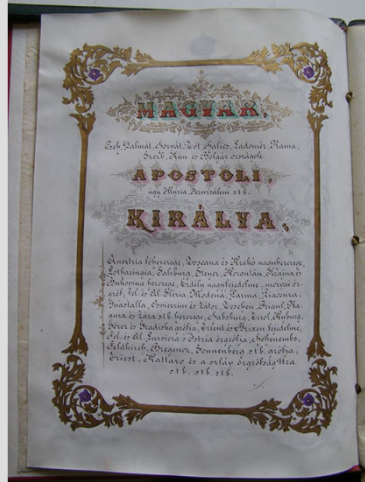 MAGYAR,
Cseh, Dalmát, Horvát, Tót, Galics, Ladomér, Ráma,
Szerb, Kun és Bolgár országok
APOSTOLI,
úgy Illyria Jeruzsálem stb.
KIRÁLYA,
Ausztria főherczege, Toscana és Krakó nagyherczege,
Lotharingia, Salzburg, Steyer, Korontán, Krajna és
Bukovina herczege, Erdély nagyfejedelme, morvai őr-
gróf, Fel és Al Slézia, Modena, Parma, Piacenza,
Guastalla, Osweczim és Zator, Teschen, Friaul, Ra-
guza és Zára stb. herczege, Habsburg, Tirol, Kyburg,
Görz és Gradiska grófja, Trient és Brixen fejedelme,
Fel és Al Lusatia s Istria őrgrófja, Hohenembs,
Feldkirch, Bregenz, Sonnenberg stb. grófja,
Triest, Kattaro és a szláv őrgrófság Ura
stb. stb. stb.